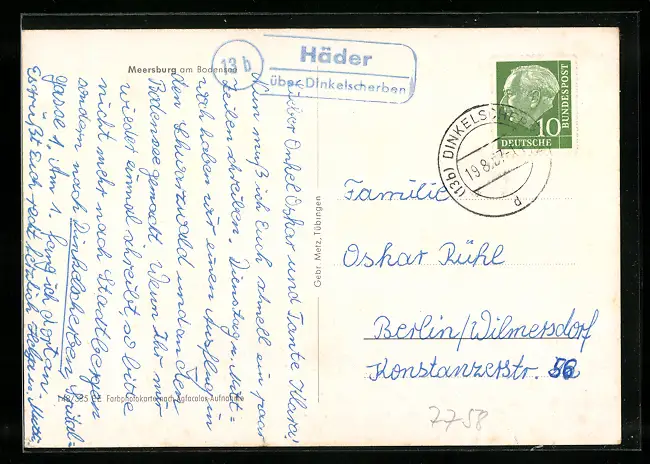 Meersburg am Bodensee
13 b
Häder
über Dinkelscherben
10
DEUTSCHE
BUNDESPOST
(13b) DINKELSCHERBEN
19.8.57
Lieber Onkel Oskar und Tante Klara!
Nun muß ich Euch schnell ein paar
Zeilen schreiben. Dienstag u. Mitt-
woch haben wir einen Ausflug in
den Schwarzwald und an den
Bodensee gemacht. Wenn Ihr mir
wieder einmal schreibt, so bitte
nicht mehr nach Stadtbergen
sondern nach Dinkelscherben, Spital-
gasse 1. Am 1. fang ich dort an.
Es grüßt Euch recht herzlich Helga u. Mutti
Gebr. Metz, Tübingen
Familie
Oskar Rühl
Berlin/Wilmersdorf
Konstanzerstr. 56
Farbphotokarte nach Agfacolor-Aufnahme
7758